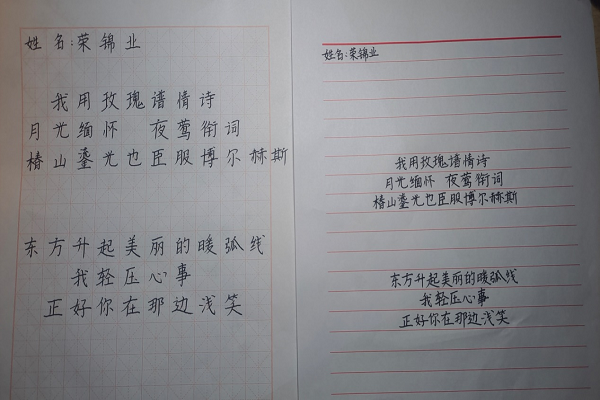 姓名:荣锦业
我用玫瑰谱情诗
月光缅怀 夜莺衔词
椿山鎏光也臣服博尔赫斯
东方升起美丽的暖弧线
我轻压心事
正好你在那边浅笑
姓名:荣锦业
我用玫瑰谱情诗
月光缅怀 夜莺衔词
椿山鎏光也臣服博尔赫斯
东方升起美丽的暖弧线
我轻压心事
正好你在那边浅笑